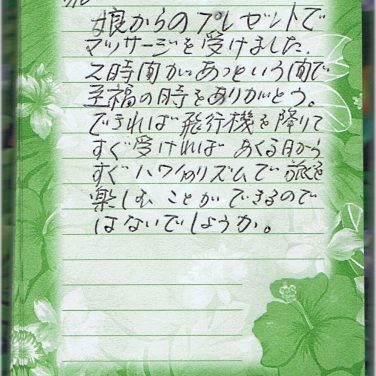 娘からのプレゼントで
マッサージを受けました。
2時間があっという間で
至福の時をありがとう。
できれば飛行機を降りて
すぐ受ければあくる日から
すぐハワイのリズムで旅を
楽しむことができるので
はないでしょうか。